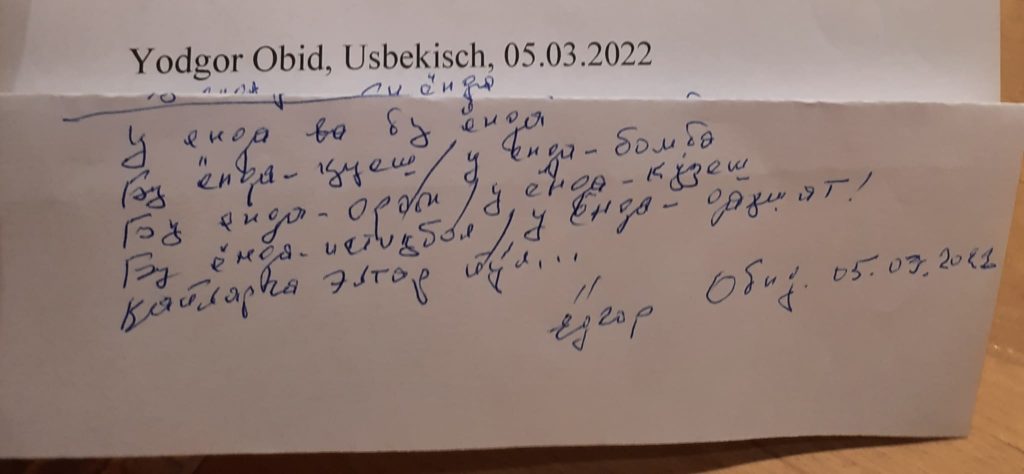 Yodgor Obid, Usbekisch, 05.03.2022
ёнда
У ёнда ва бу ёнда
Бу ёнда - қуёш / у ёнда - бомба
Бу ёнда - орзу / у ёнда - кўзёш
Бу ёнда - истиқбол / у ёнда - даҳшат!
Қайларга элтар йўл...
Ёдгор Обид. 05.03.2022